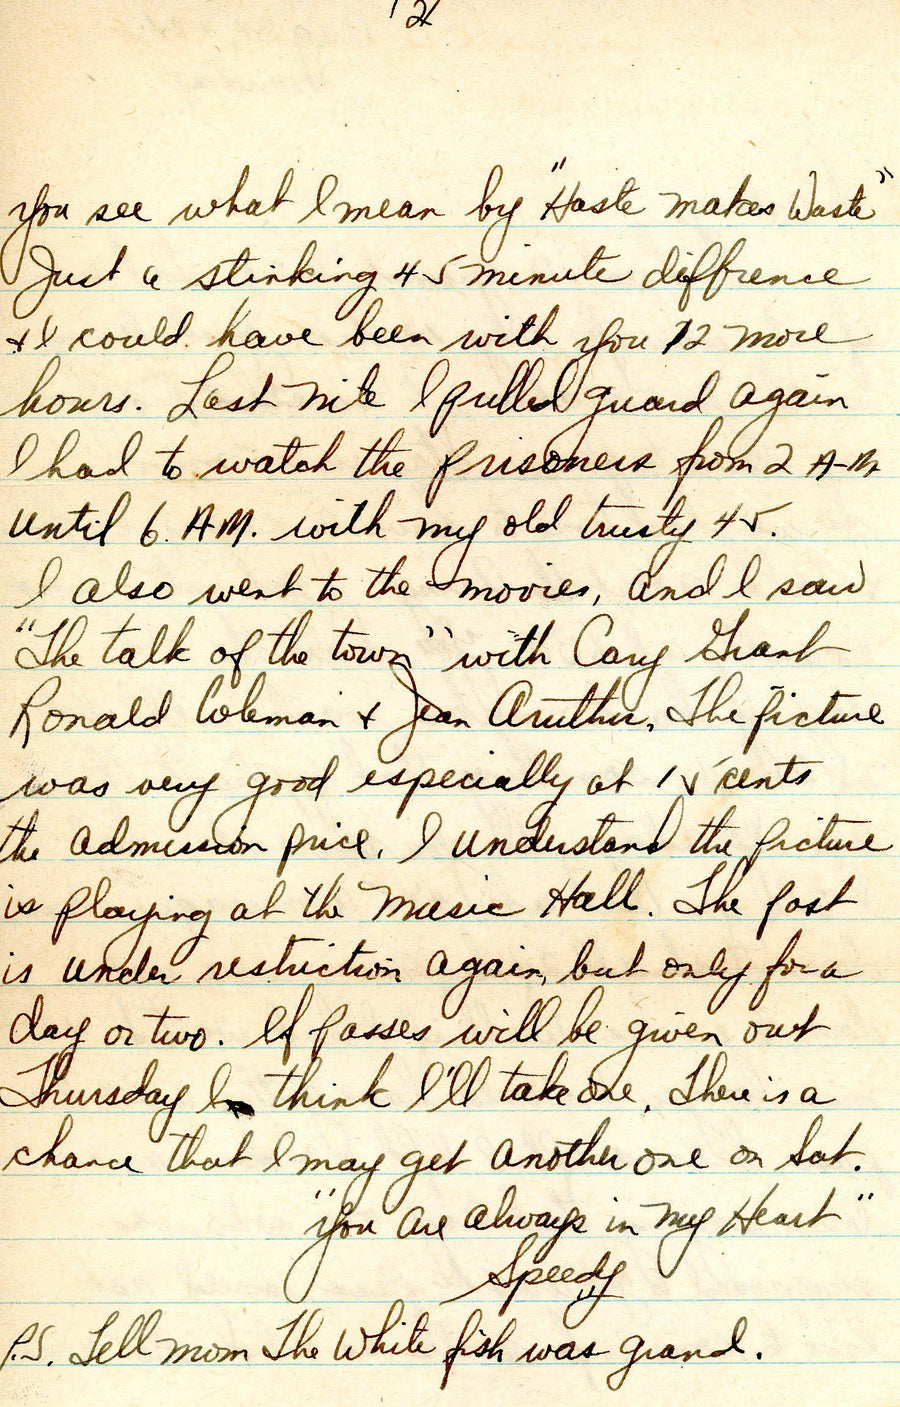 2
you see what I mean by "Haste makes Waste"
Just a stinking 45 minute diffrence
+ I could have been with you 12 more
hours. Last nite I pulled guard again
I had to watch the prisoners from 2 A-M
until 6 A.M. with my old trusty 45.
I also went to the movies, and I saw
"The talk of the town" with Cary Grant
Ronald Coleman + Jean Aruther. The picture
was very good especially at 15 cents
the admission price. I understand the picture
is playing at the Music Hall. The post
is under restriction again, but only for a
day or two. If passes will be given out
Thursday I think I'll take one. There is a
chance that I may get another one on Sat.
"You are always in my Heart"
Speedy
P.S. Tell mom The White fish was grand.